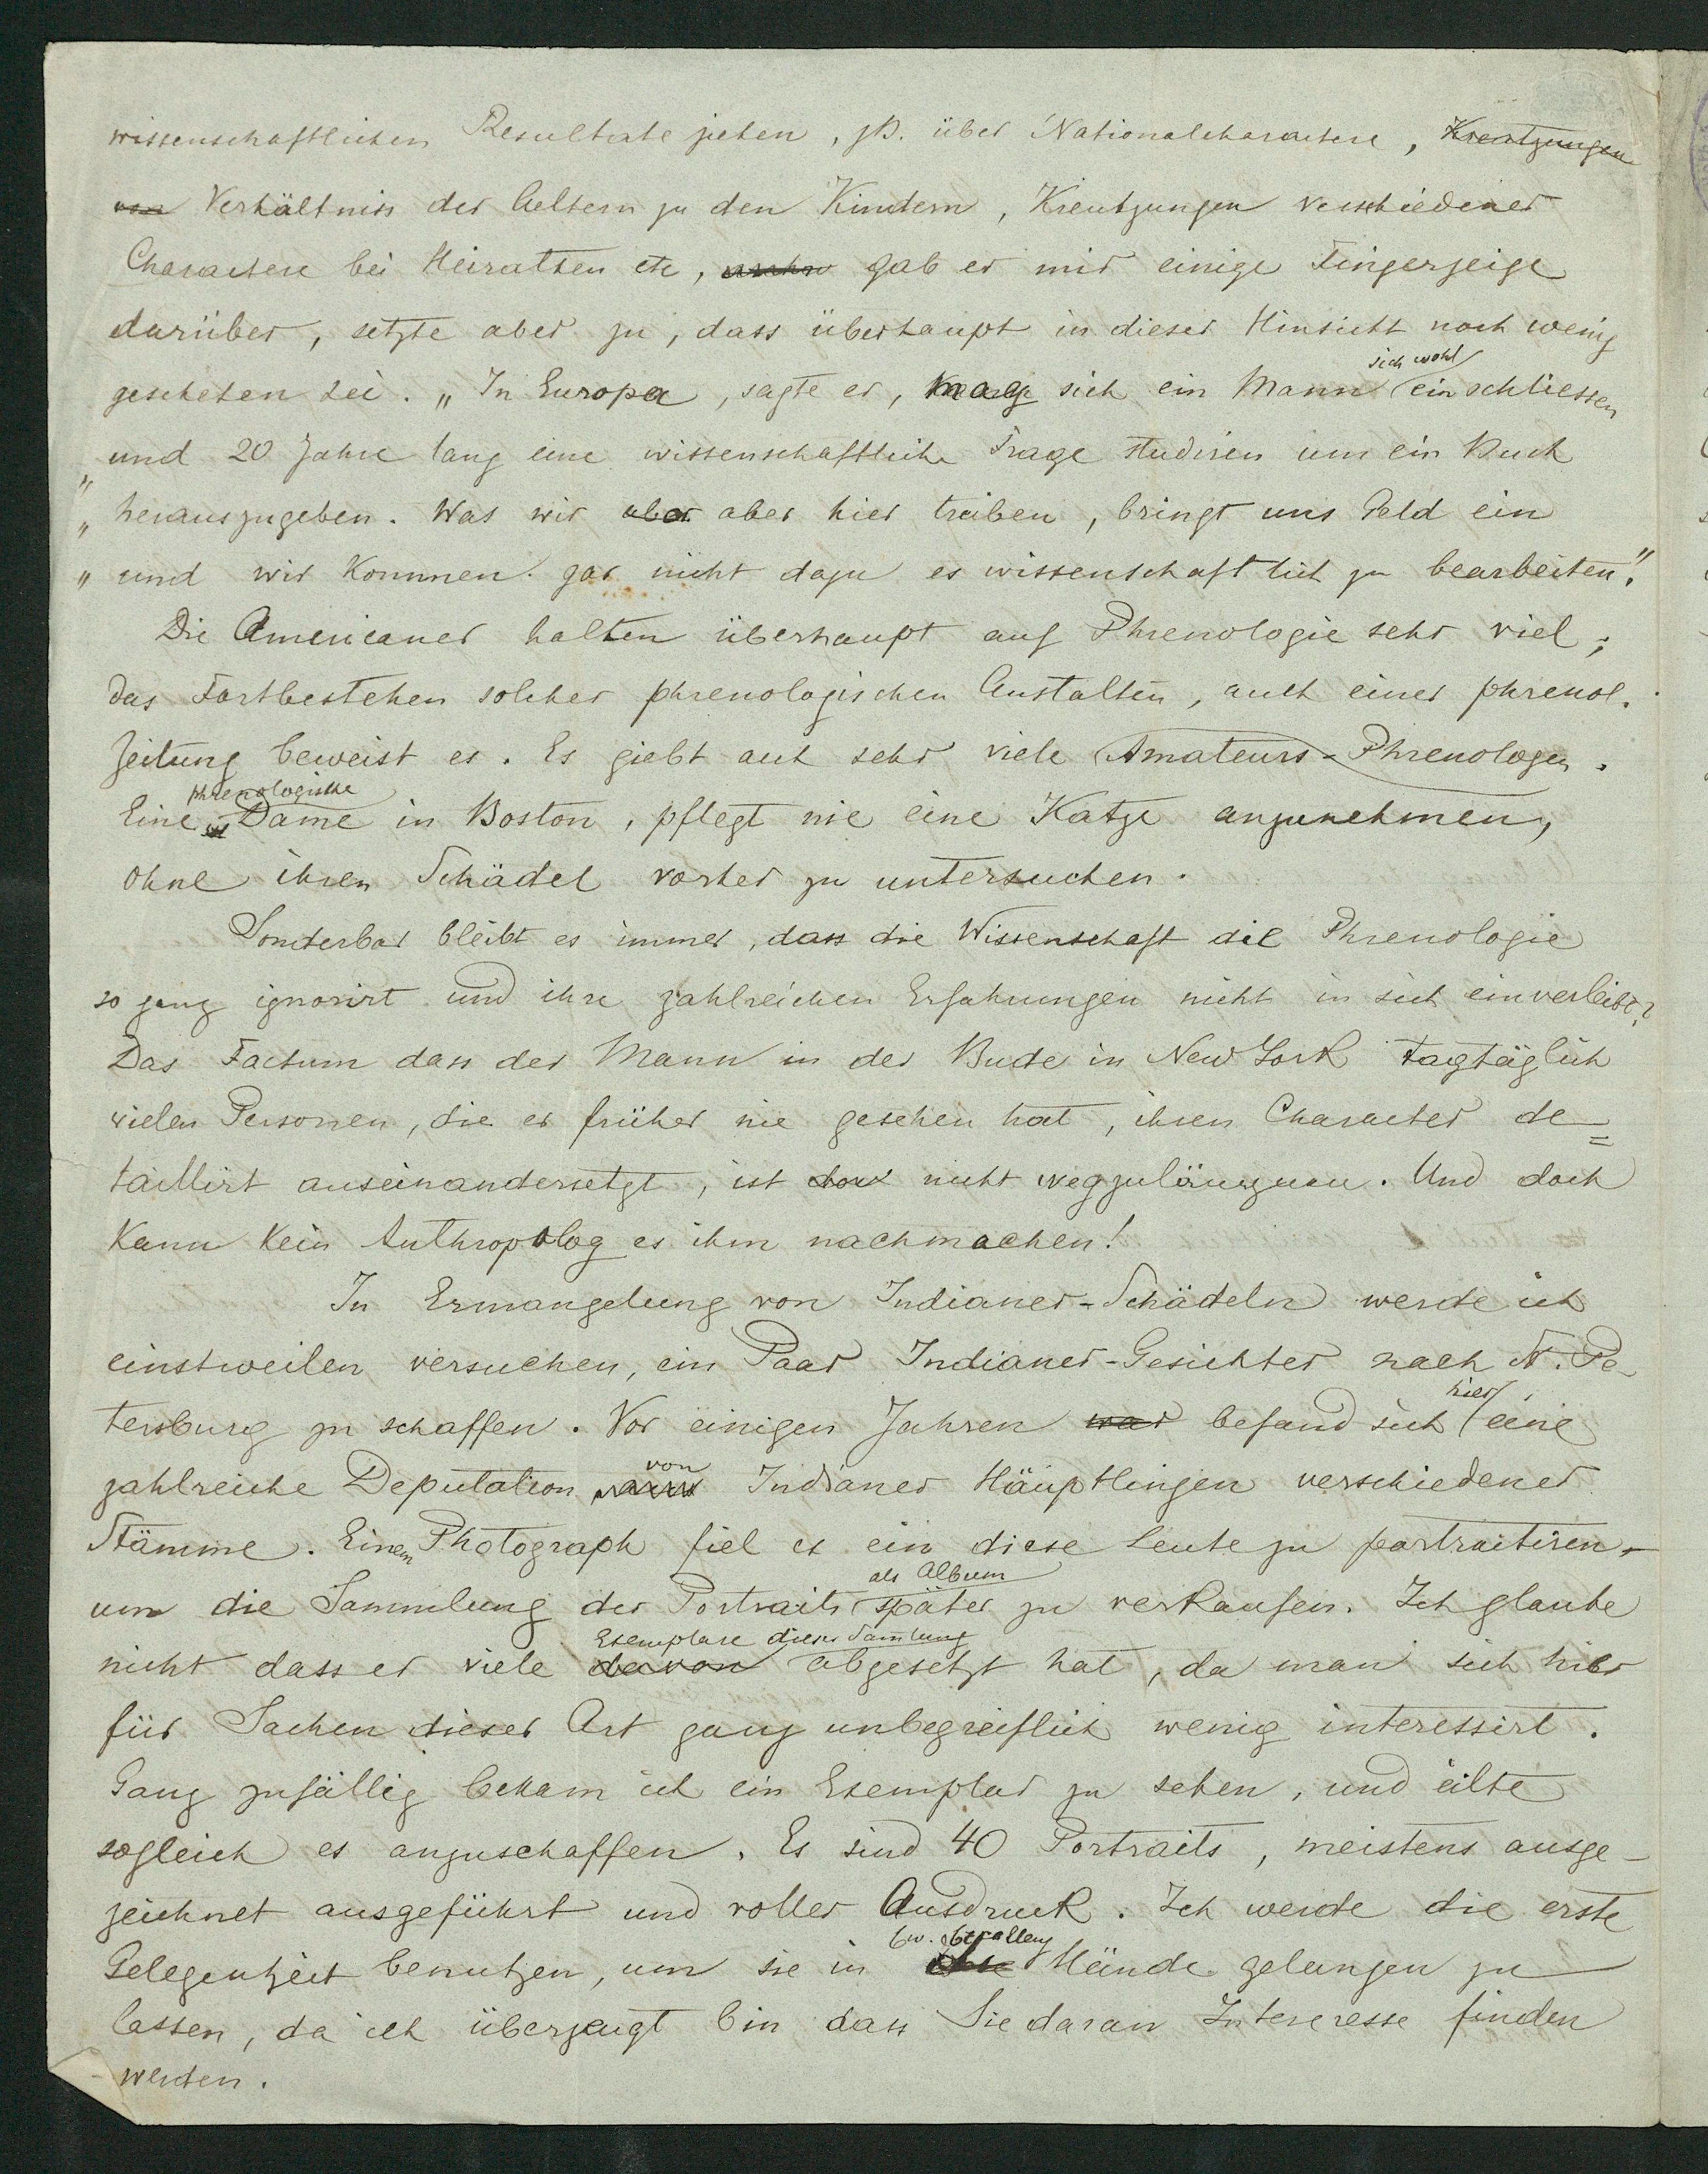 wissenschaftlichen Resultate ziehen, zB. über Nationalcharactere, Kreutzungen
von Verhältniss der Aeltern zu den Kindern, Kreutzungen verschiedener
Charactere bei Heirathen etc, gab er mir einige Fingerzeige
darüber, setzte aber zu, dass überhaupt in dieser Hinsicht noch wenig
geschehen sei. „In Europa, sagte er, mag sich ein Mann sich wohl einschliessen
„ und 20 Jahre lang eine wissenschaftliche Frage studiren um ein Buch
„ herauszugeben. Was wir aber aber hier treiben, bringt uns Geld ein
„ und wir kommen gar nicht dazu es wissenschaftlich zu bearbeiten."
Die Americaner halten überhaupt auf Phrenologie sehr viel;
das Fortbestehen solcher phrenologischen Anstalten, auch einer phrenol.
Zeitung beweist es. Es giebt auch sehr viele Amateurs-Phrenologen.
Eine phrenologische Dame in Boston, pflegt nie eine Katze anzunehmen,
ohne ihren Schädel vorher zu untersuchen.
Sonderbar bleibt es immer, dass die Wissenschaft die Phrenologie
so ganz ignorirt und ihre zahlreichen Erfahrungen nicht in sich einverleibt?
Das Factum dass der Mann in der Bude in New York tagtäglich
vielen Personen, die er früher nie gesehen hat, ihren Character de=
taillirt auseinandersetzt, ist nicht wegzuläugnen. Und doch
kann kein Anthropolog es ihm nachmachen!
In Ermangelung von Indianer-Schädeln werde ich
einstweilen versuchen, ein Paar Indianer-Gesichter nach St. Pe-
tersburg zu schaffen. Vor einigen Jahren war befand sich hier eine
zahlreiche Deputation von Indianer Häuptlingen verschiedener
Stämme. Einem Photograph fiel es ein diese Leute zu portraitiren
um die Sammlung der Portraits als Album später zu verkaufen. Ich glaube
nicht dass er viele davon Exemplare dieser Samlung abgesetzt hat, da man sich hier
für Sachen dieser Art ganz unbegreiflich wenig interessirt.
Ganz zufällig bekam ich ein Exemplar zu sehen, und eilte
sogleich es anzuschaffen. Es sind 40 Portraits, meistens ausge-
zeichnet ausgeführt und voller Ausdruck. Ich werde die erste
Gelegenheit benutzen, um sie in Ew. Hände gelangen zu
lassen, da ich überzeugt bin dass Sie daran Intereresse finden
werden.